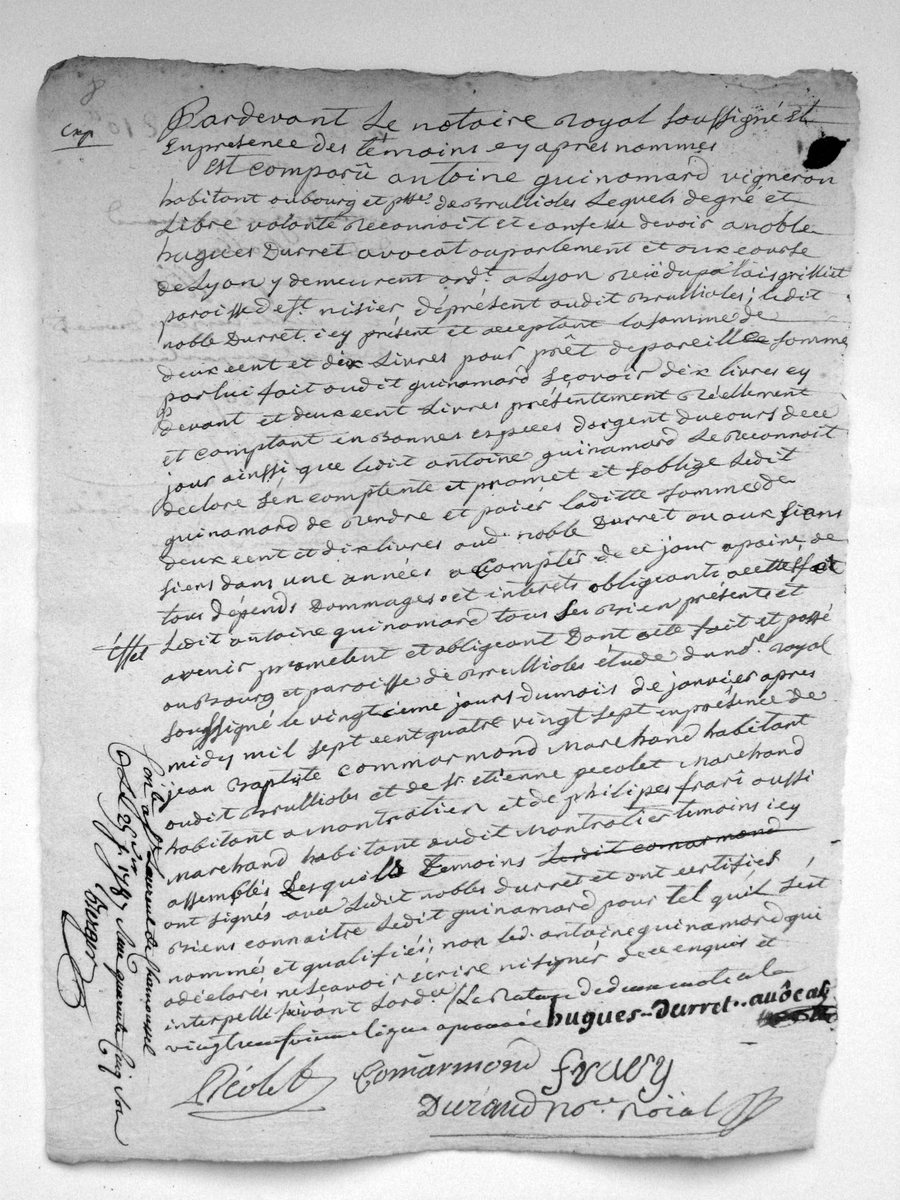 8
Cnp
Pardevant Le notaire Royal Soussigné Et
En presence des témoins cy apres nommés
Est comparü antoine guinamard vigneron
habitant au bourg et psse de Brullioles Lequels de gré et
Libre volonté Reconnoit et confesse devoir a noble
hugues Durret avocat au parlement et aux cours
de Lyon y demeurent ordt. a Lyon Rüe du palais grilliet
paroisse de st. nisier, déprésent audit Brullioles; ledit
noble Durret icy présent et acceptant la somme de
deux cent et dix Livres pour prêt de pareille somme
par lui fait audit guinamard sçavoir dix livres cy
devant et deux cent Livres présentement Réellement
et comptant en Bonnes especes d'argent du cours de ce
jour ainssi que ledit antoine guinamard Le Reconnoit
declare s'en comptente et promet et soblige Ledit
guinamard de Rendre et paier laditte somme de
deux cent et dix livres aud. noble Durret ou aux siens
siens dans une années a Compter de ce jour a paine de
tous dépends Dommages et interets obligeant a cette fait
Effet
Ledit antoine guinamard tous ses Bien présents et
avenir promettent et obligeant Dont acte fait et passé
au Bourg et paroisse de Brullioles étude du nore. royal
soussigné le vingtieme jours du mois de janvier apres
midy mil sept cent quatre vingt sept en présence de
jean Baptiste Commarmond Marchand habitant
audit Brullioles et de sr. etienne pecolet Marchand
habitant a Montratier et de philipes frari aussi
Marchand habitant audit Montratier temoins icy
assemblés Lesquels Temoins Ledit comarmond
ont signés avec Ledit nobles durret et ont certifiés
Biens connaitre Ledit guinamard pour tel quil s'est
nommés et qualifiés; non led. antoine guinamard qui
a déclarés ne sçavoir écrire ni signér de ce enquis et
interpellé suivant Lord.ce / La Rature de deux mots a la
vingt neufvieme ligne
hugues-Durret..avôcat
Pécolet Comarmond fravy
Durand nore. Roïal
Con.lé a St. Laurent de Chamousset
Le 25 jr. 1787